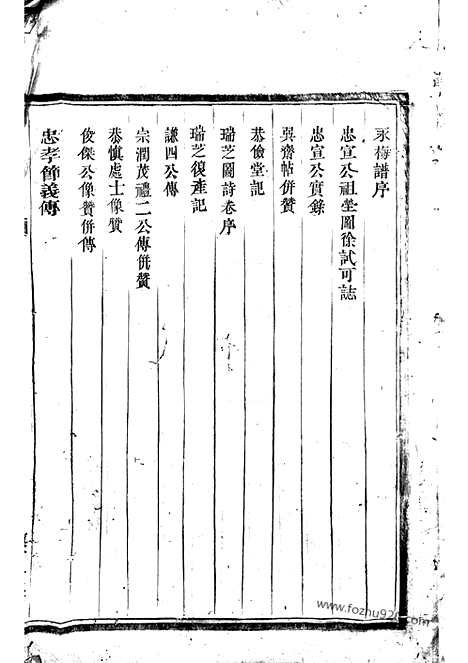 永梅譜序
忠宣公祖塋圖徐試可誌
忠宣公實錄
巽齋帖併贊
恭儉堂記
瑞芝圖詩卷序
瑞芝復產記
謙四公傳
宗潤茂禮二公傳併贊
恭慎處士像贊
俊傑公像贊併傳
忠孝節義傳
www.fozhu920.com